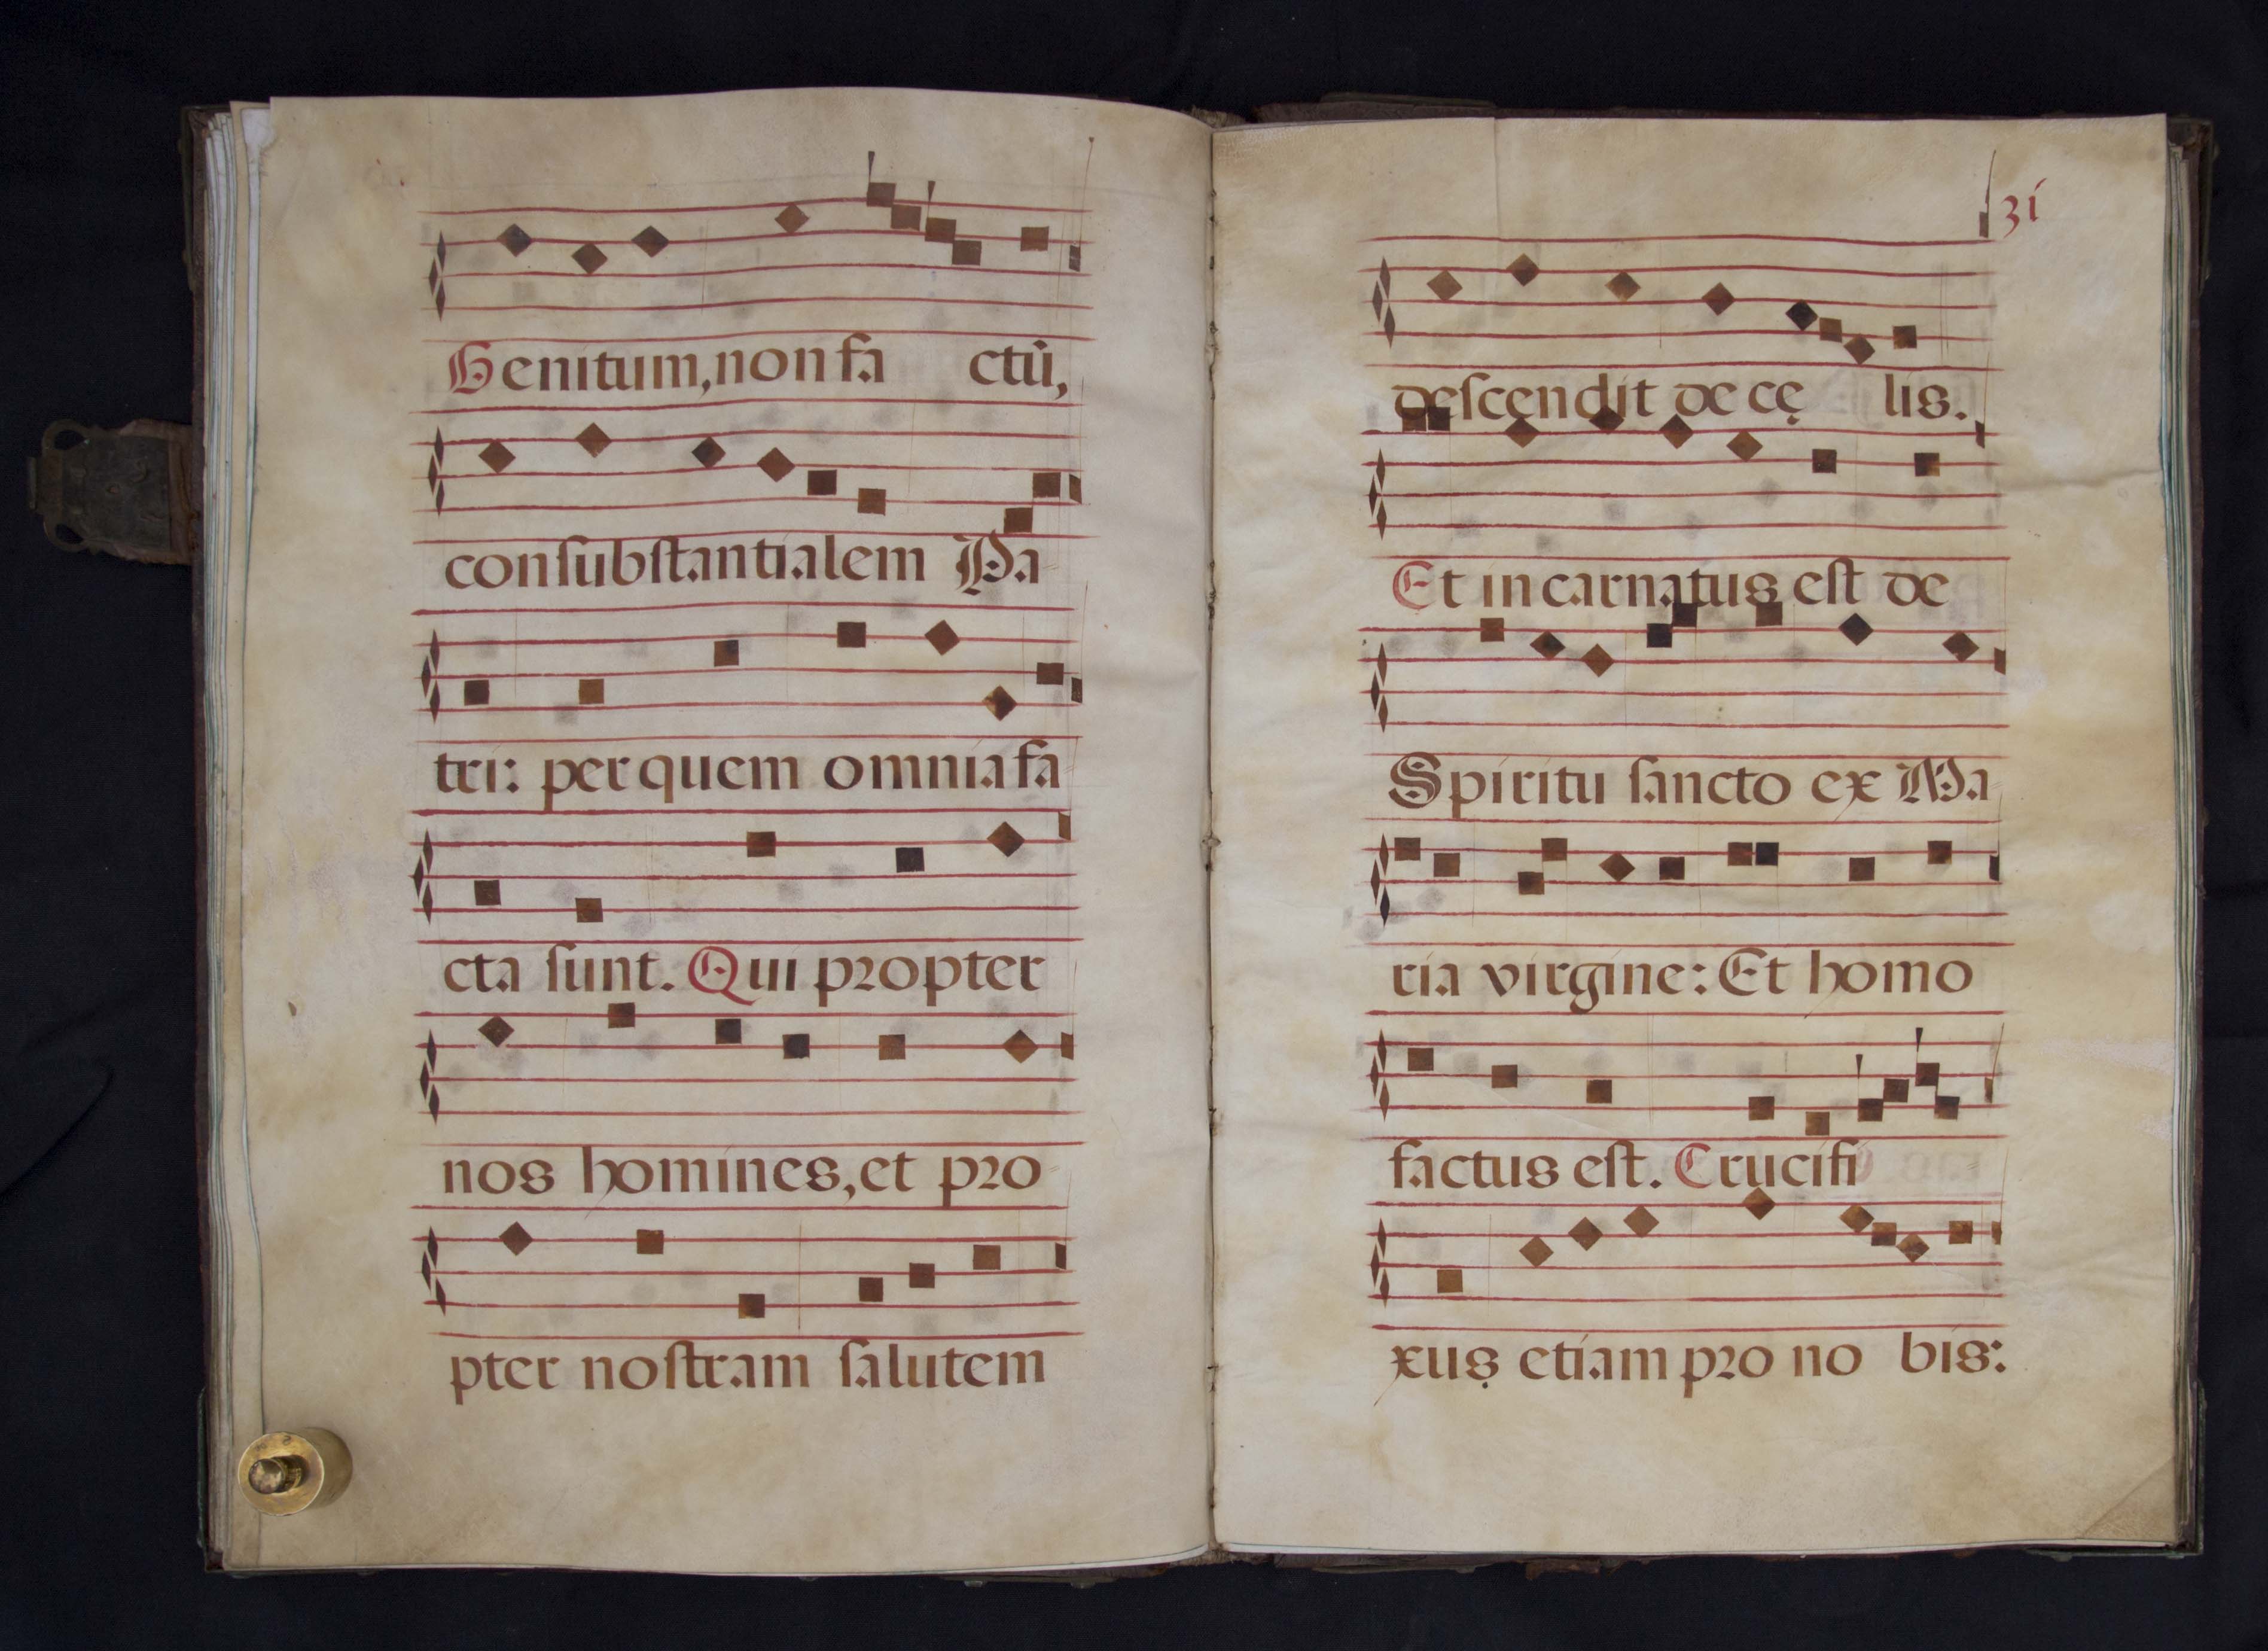 Genitum, non fa ctũ,
consubstantialem Pa
tri: per quem omnia fa
cta sunt. Qui propter
nos homines, et pro
pter nostram salutem
31
descendit de cę lis.
Et incarnatus est de
Spiritu sancto ex Ma
ria virgine: Et homo
factus est. Crucifi
xus etiam pro no bis: